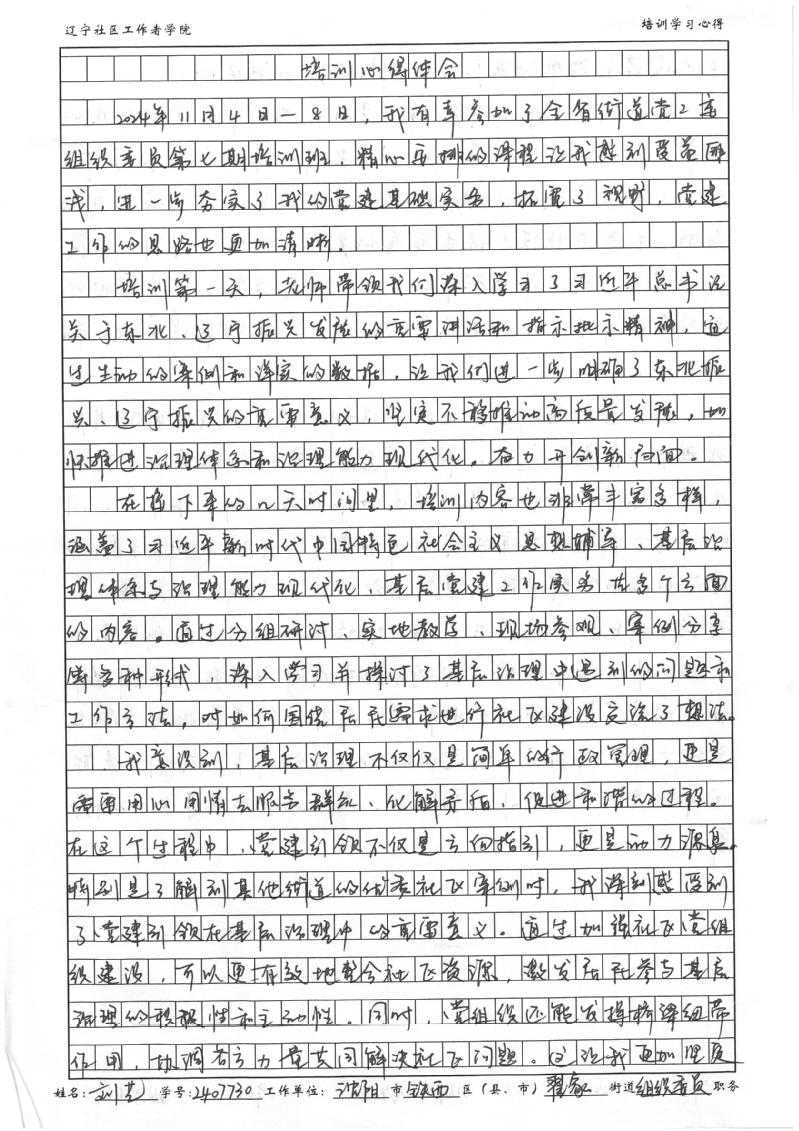 辽宁社区工作者学院 培训学习心得
培训心得体会
2024年11月4日—8日，我有幸参加了全省街道党工委
组织委员第七期培训班，精心安排的课程让我感到受益匪
浅，进一步夯实了我的党建基础实务，拓宽了视野，党建
工作的思路也更加清晰。
培训第一天，老师带领我们深入学习了习近平总书记
关于东北、辽宁振兴发展的重要讲话和指示批示精神，通
过生动的案例和详实的数据，让我们进一步明确了东北振
兴、辽宁振兴的重要意义，坚定不移推动高质量发展，加
快推进治理体系和治理能力现代化，奋力开创新局面。
在接下来的几天时间里，培训内容也非常丰富多样，
涵盖了习近平新时代中国特色社会主义思想辅导、基层治
理体系与治理能力现代化、基层党建工作实务等多个方面
的内容。通过分组研讨、实地教学、现场参观、案例分享
等多种形式，深入学习并探讨了基层治理中遇到的问题和
工作方法，对如何围绕居民需求进行社区建设交流了想法。
我意识到，基层治理不仅仅是简单的行政管理，更是
需要用心用情去服务群众、化解矛盾、促进和谐的过程。
在这个过程中，党建引领不仅是方向指引，更是动力源泉。
特别是了解到其他街道的优秀社区案例时，我深刻感受到
了党建引领在基层治理中的重要意义。通过加强社区党组
织建设，可以更有效地整合社区资源，激发居民参与基层
治理的积极性和主动性。同时，党组织还能发挥桥梁纽带
作用，协调各方力量共同解决社区问题。这让我更加坚定
姓名：刘艺 学号：2407730 工作单位：沈阳市铁西区（县、市）翟家街道组织委员职务